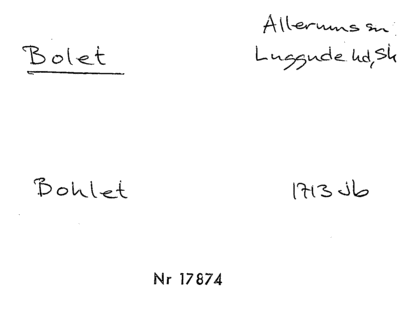 Allerums sn
Bolet
Luggude hd, Sk
Bohlet
1713 jb
Nr 17874